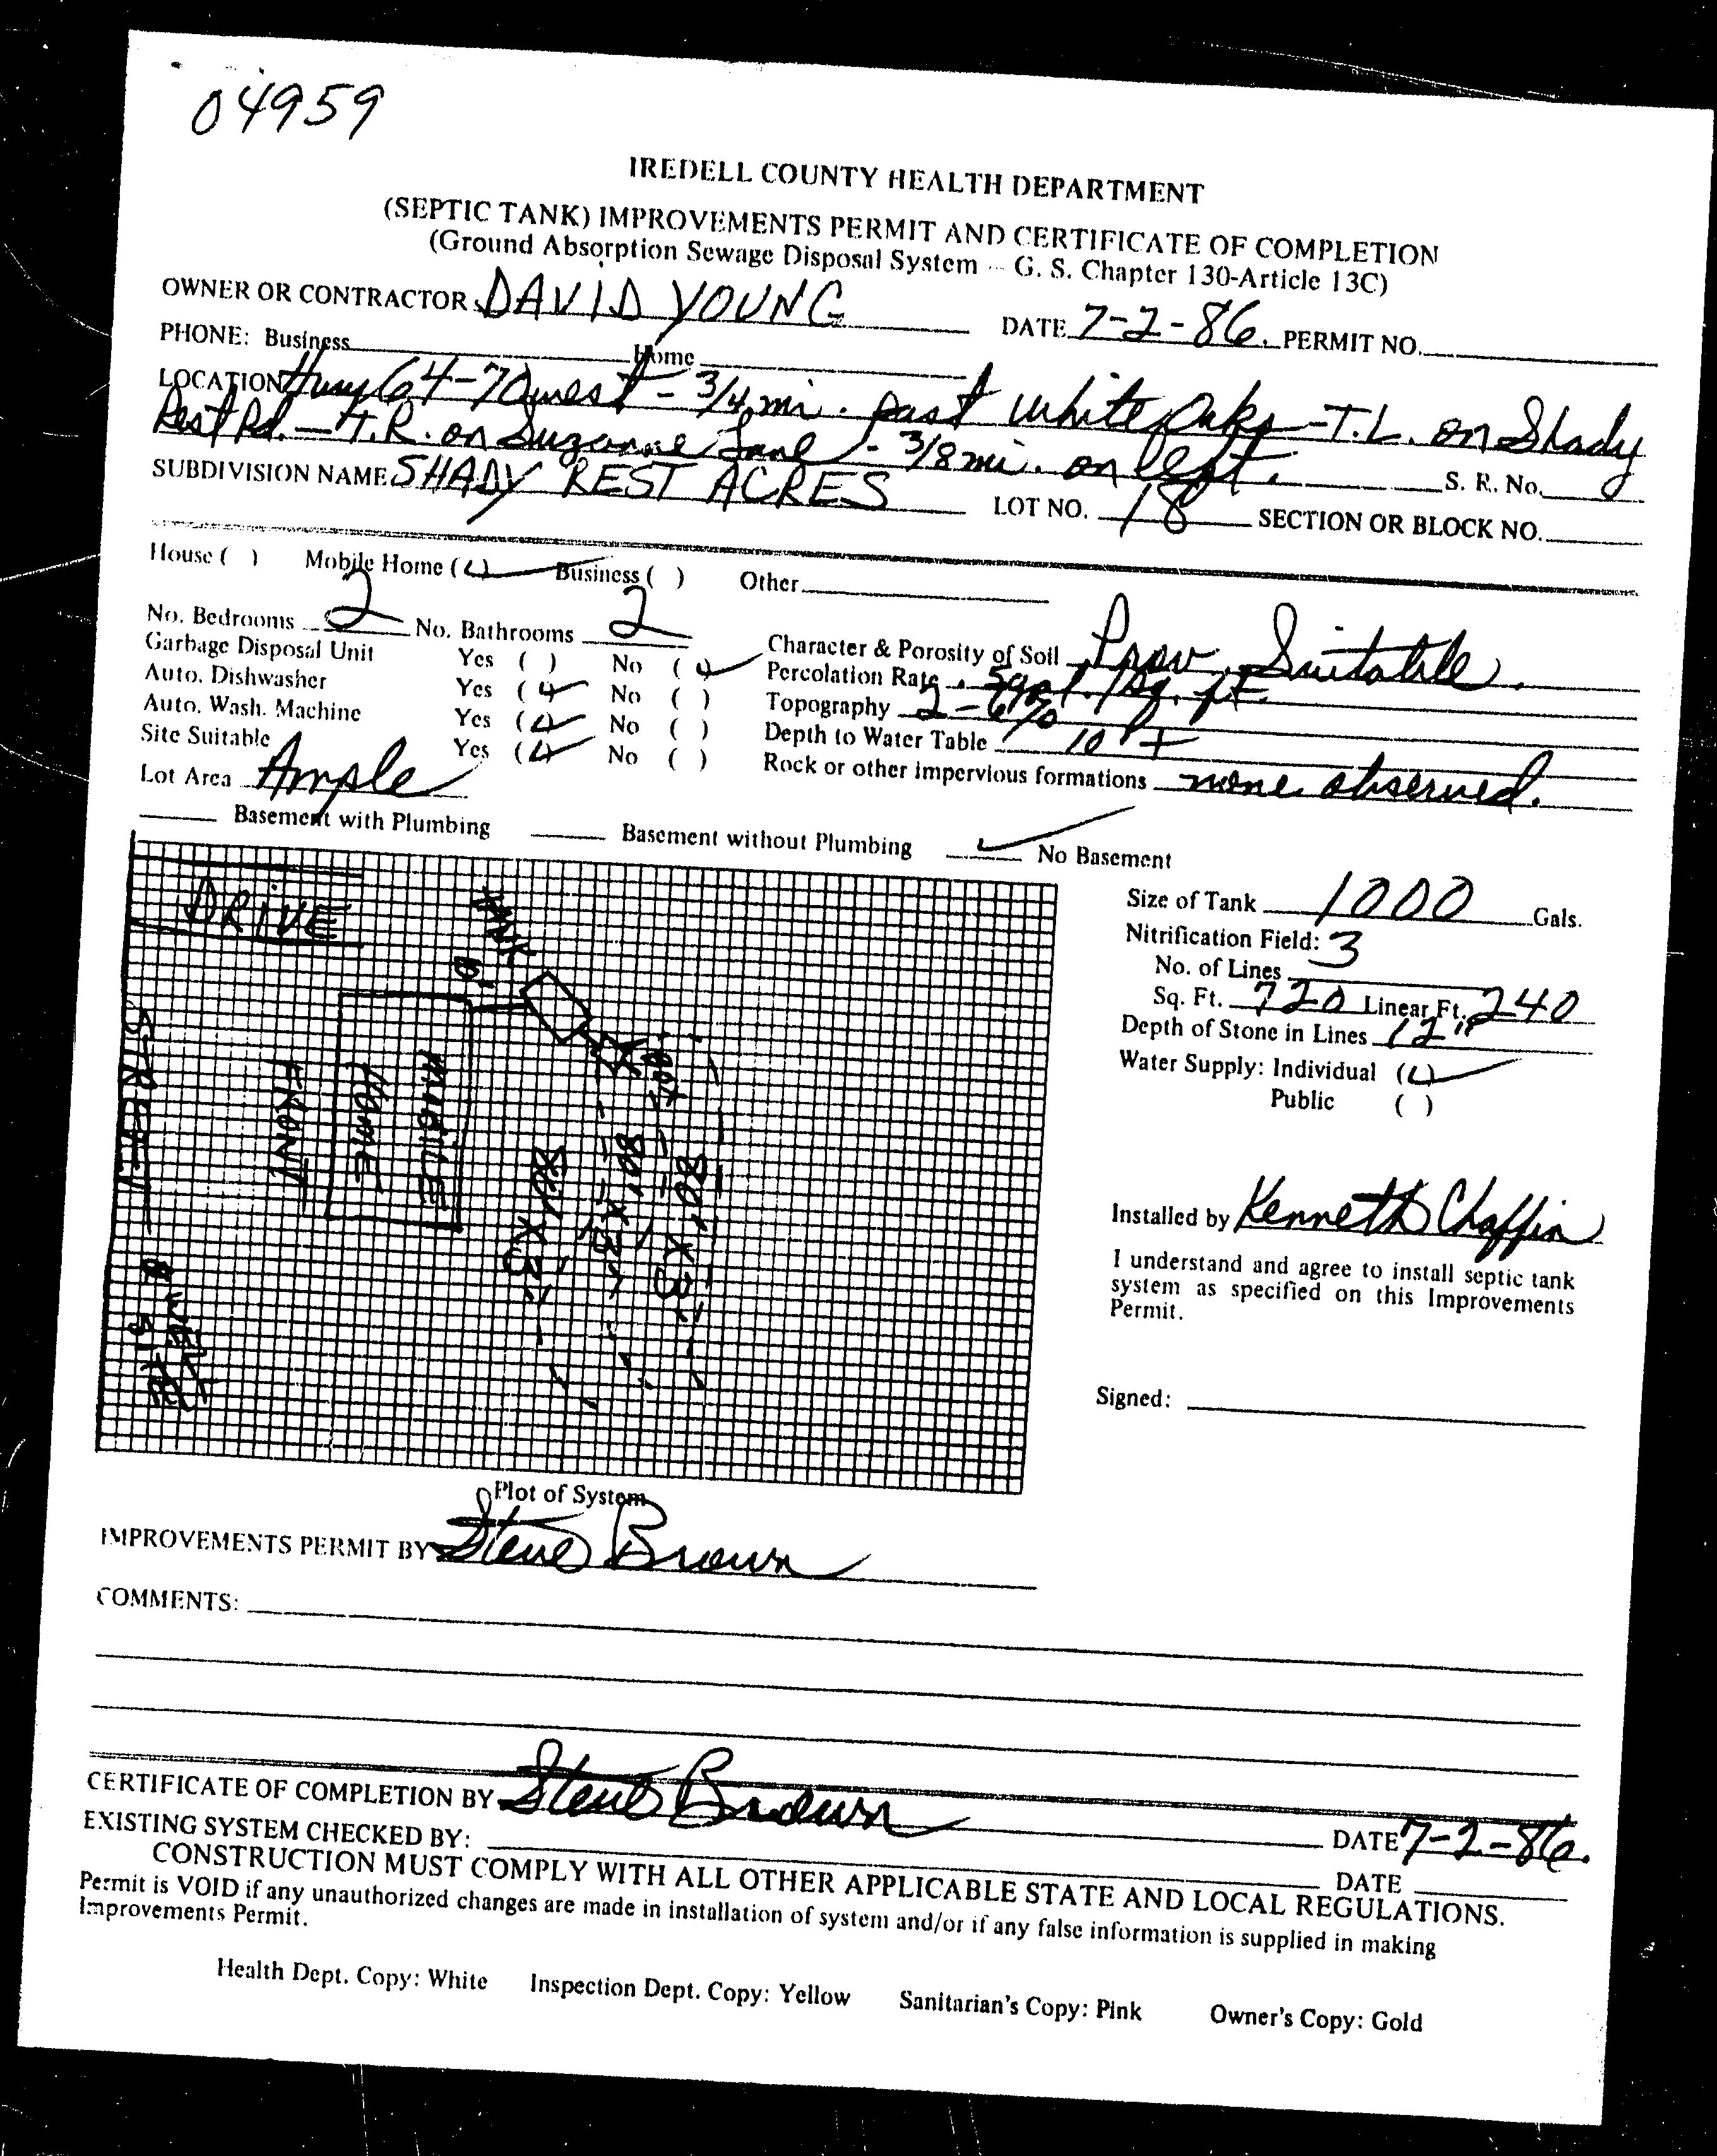 04959
IREDELL COUNTY HEALTH DEPARTMENT
(SEPTIC TANK) IMPROVEMENTS PERMIT AND CERTIFICATE OF COMPLETION
(Ground Absorption Sewage Disposal System -- G. S. Chapter 130-Article 13C)
OWNER OR CONTRACTOR DAVID YOUNG DATE 7-2-86. PERMIT NO.
PHONE: Business Home
LOCATION Hwy 64-70 west - 3/4 mi. past White Oaks - T.L. on Shady
Rest Rd. - T.R. on Suzanne Lane - 3/8 mi. on left. S. R. No.
SUBDIVISION NAME SHADY REST ACRES LOT NO. 18 SECTION OR BLOCK NO.
House ( ) Mobile Home (✓) Business ( ) Other
No. Bedrooms 2 No. Bathrooms 2 Character & Porosity of Soil Prov. Suitable.
Garbage Disposal Unit Yes ( ) No (✓) Percolation Rate .5 gal./sq. ft.
Auto. Dishwasher Yes (✓) No ( ) Topography 2-6%
Auto. Wash. Machine Yes (✓) No ( ) Depth to Water Table 10'+
Site Suitable Yes (✓) No ( ) Rock or other impervious formations none observed.
Lot Area Ample
Basement with Plumbing Basement without Plumbing ✓ No Basement
DRIVE
TANK
10'
STREET
FRONT
MOBILE
HOME
80' X 3'
80' X 3'
80' X 3'
Size of Tank 1000 Gals.
Nitrification Field:
No. of Lines 3
Sq. Ft. 720 Linear Ft. 240
Depth of Stone in Lines 12"
Water Supply: Individual (✓)
Public ( )
Installed by Kenneth Chaffin
I understand and agree to install septic tank
system as specified on this Improvements
Permit.
Signed:
Plot of System
IMPROVEMENTS PERMIT BY Steve Brown
COMMENTS:
CERTIFICATE OF COMPLETION BY Steve Brown DATE 7-2-86.
EXISTING SYSTEM CHECKED BY: DATE
CONSTRUCTION MUST COMPLY WITH ALL OTHER APPLICABLE STATE AND LOCAL REGULATIONS.
Permit is VOID if any unauthorized changes are made in installation of system and/or if any false information is supplied in making
Improvements Permit.
Health Dept. Copy: White Inspection Dept. Copy: Yellow Sanitarian's Copy: Pink Owner's Copy: Gold